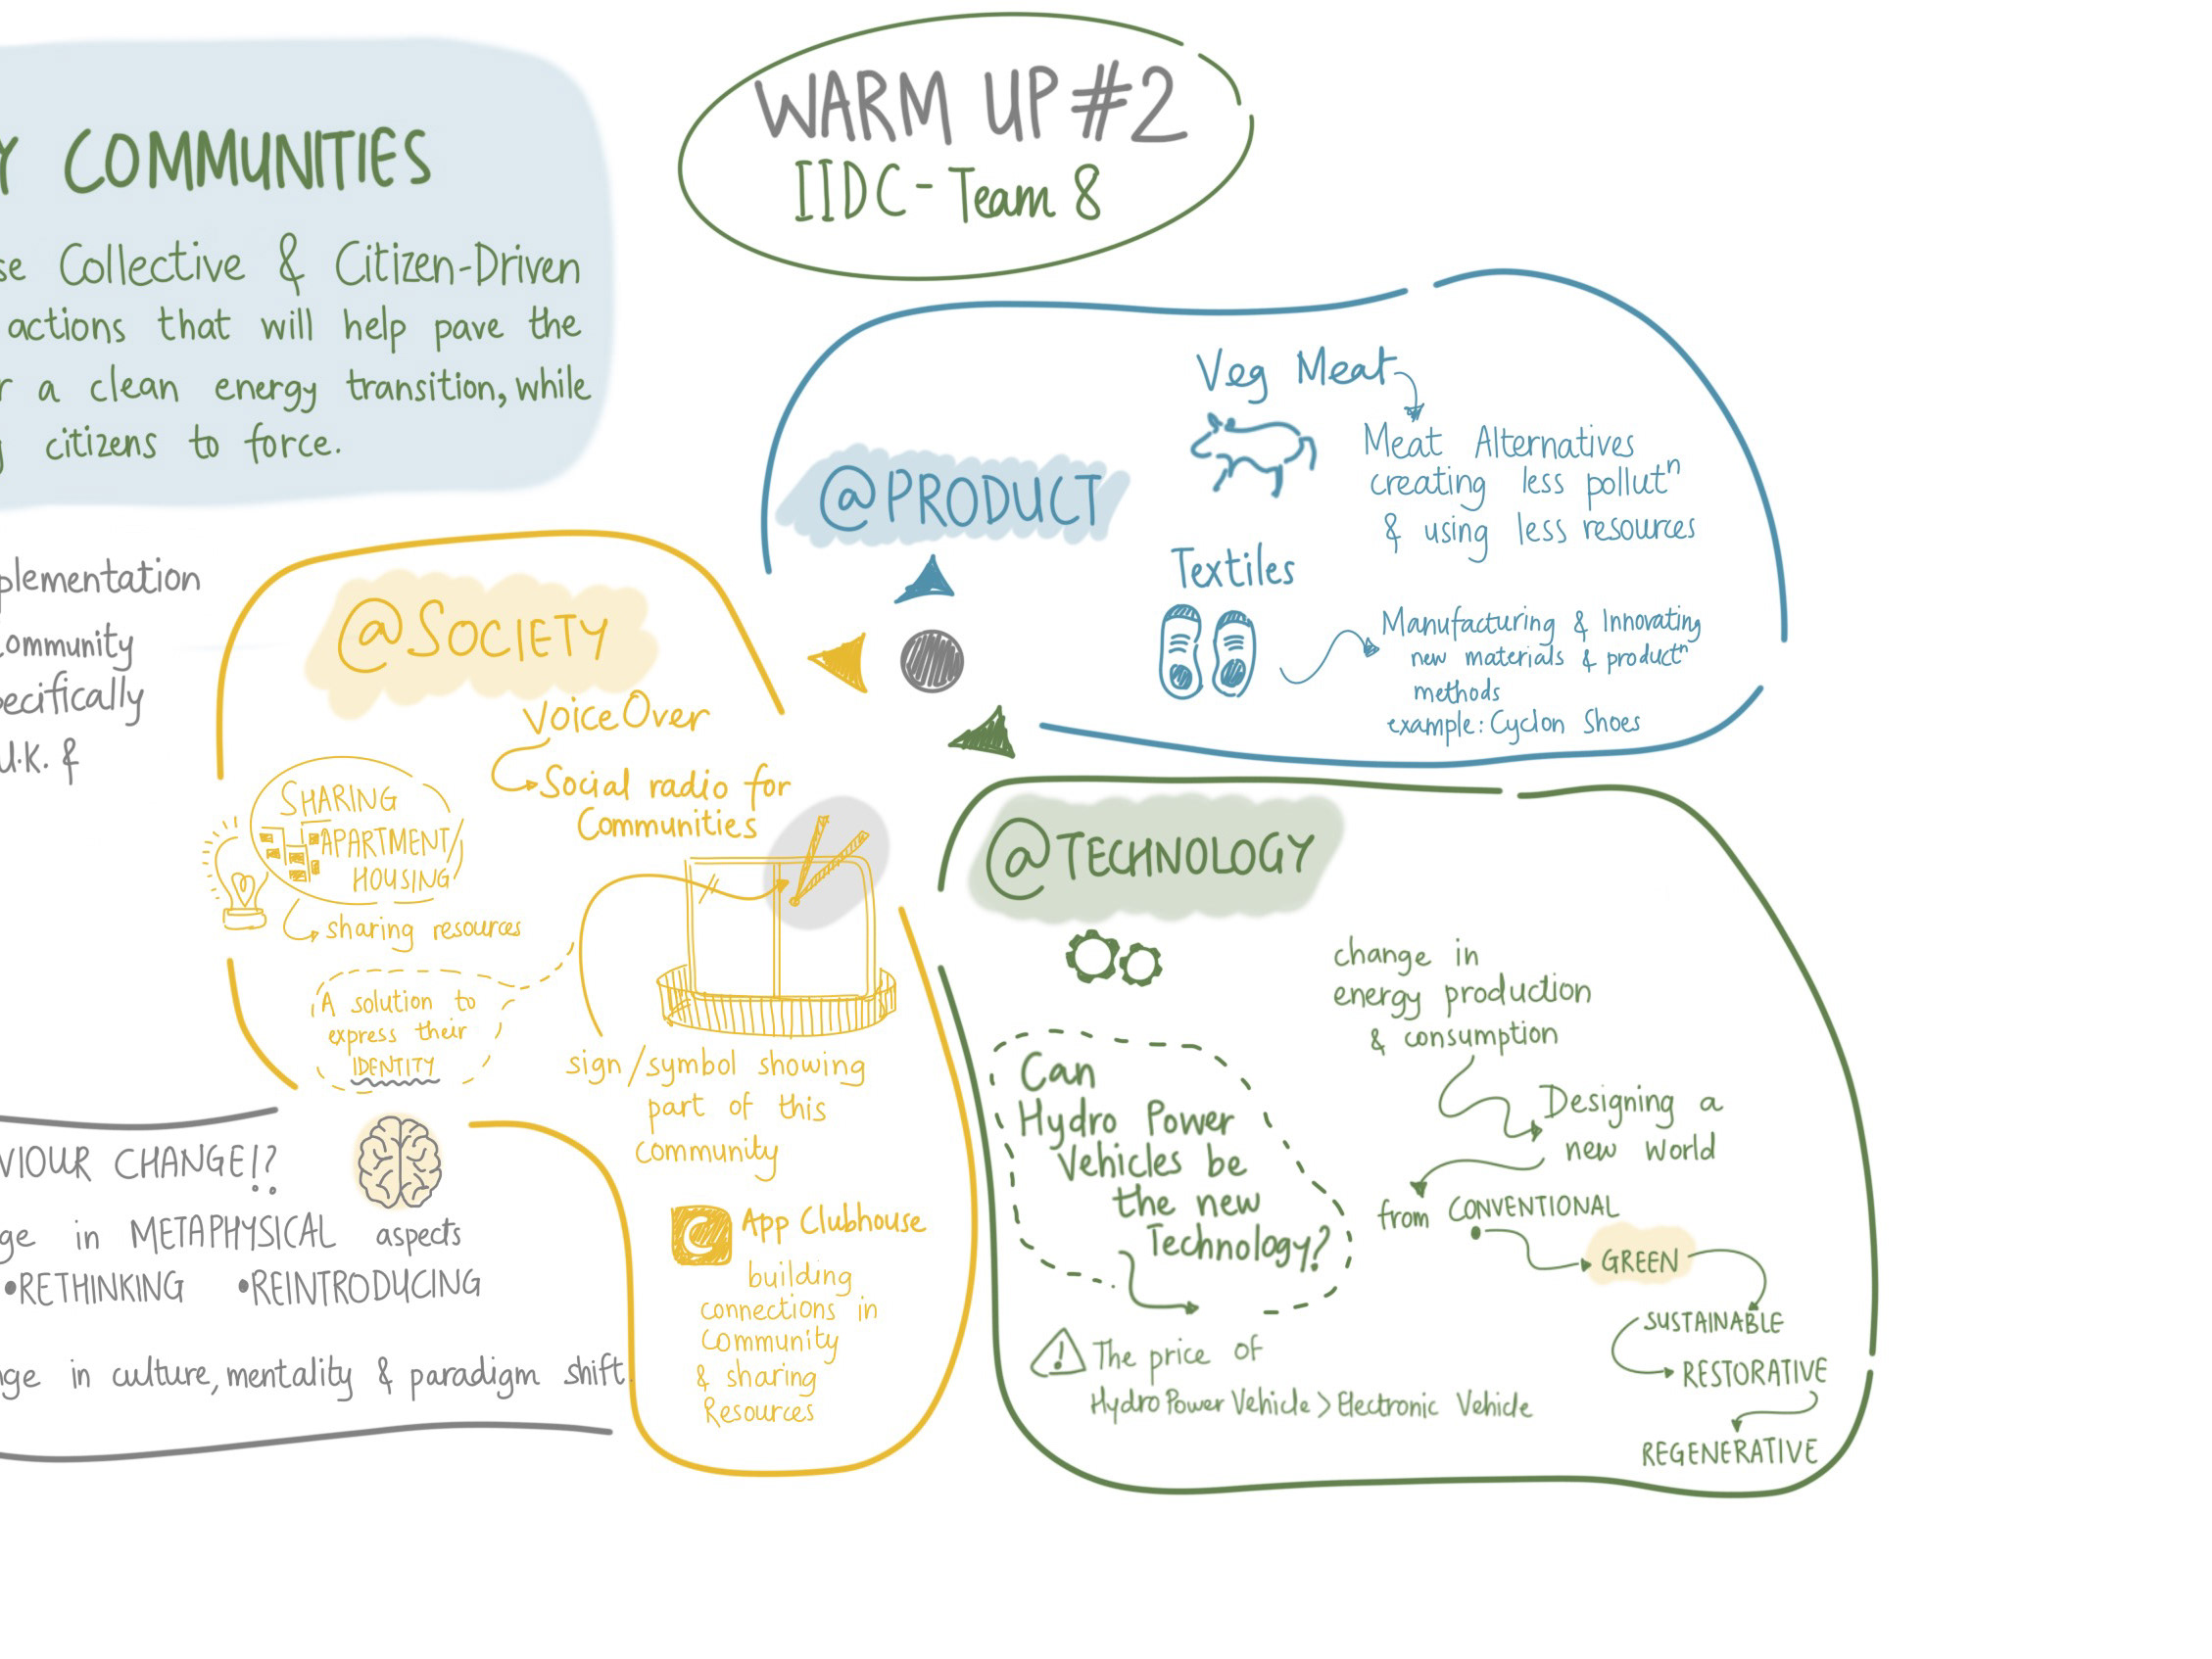 WARM UP #2
IIDC - Team 8
Y COMMUNITIES
se Collective & Citizen-Driven
actions that will help pave the
r a clean energy transition, while
g citizens to force.
plementation
ommunity
pecifically
U.K. &
@SOCIETY
VoiceOver
Social radio for
Communities
SHARING
APARTMENT/
HOUSING
sharing resources
A solution to
express their
IDENTITY
sign/symbol showing
part of this
community
C
App Clubhouse
building
connections in
Community
& sharing
Resources
VIOUR CHANGE!?
ge in METAPHYSICAL aspects
•RETHINKING •REINTRODUCING
nge in culture, mentality & paradigm shift.
@PRODUCT
Veg Meat
Meat Alternatives
creating less pollutⁿ
& using less resources
Textiles
Manufacturing & Innovating
new materials & productⁿ
methods
example: Cyclon Shoes
@TECHNOLOGY
change in
energy production
& consumption
Designing a
new world
from CONVENTIONAL
GREEN
SUSTAINABLE
RESTORATIVE
REGENERATIVE
Can
Hydro Power
Vehicles be
the new
Technology?
! The price of
Hydro Power Vehicle > Electronic Vehicle